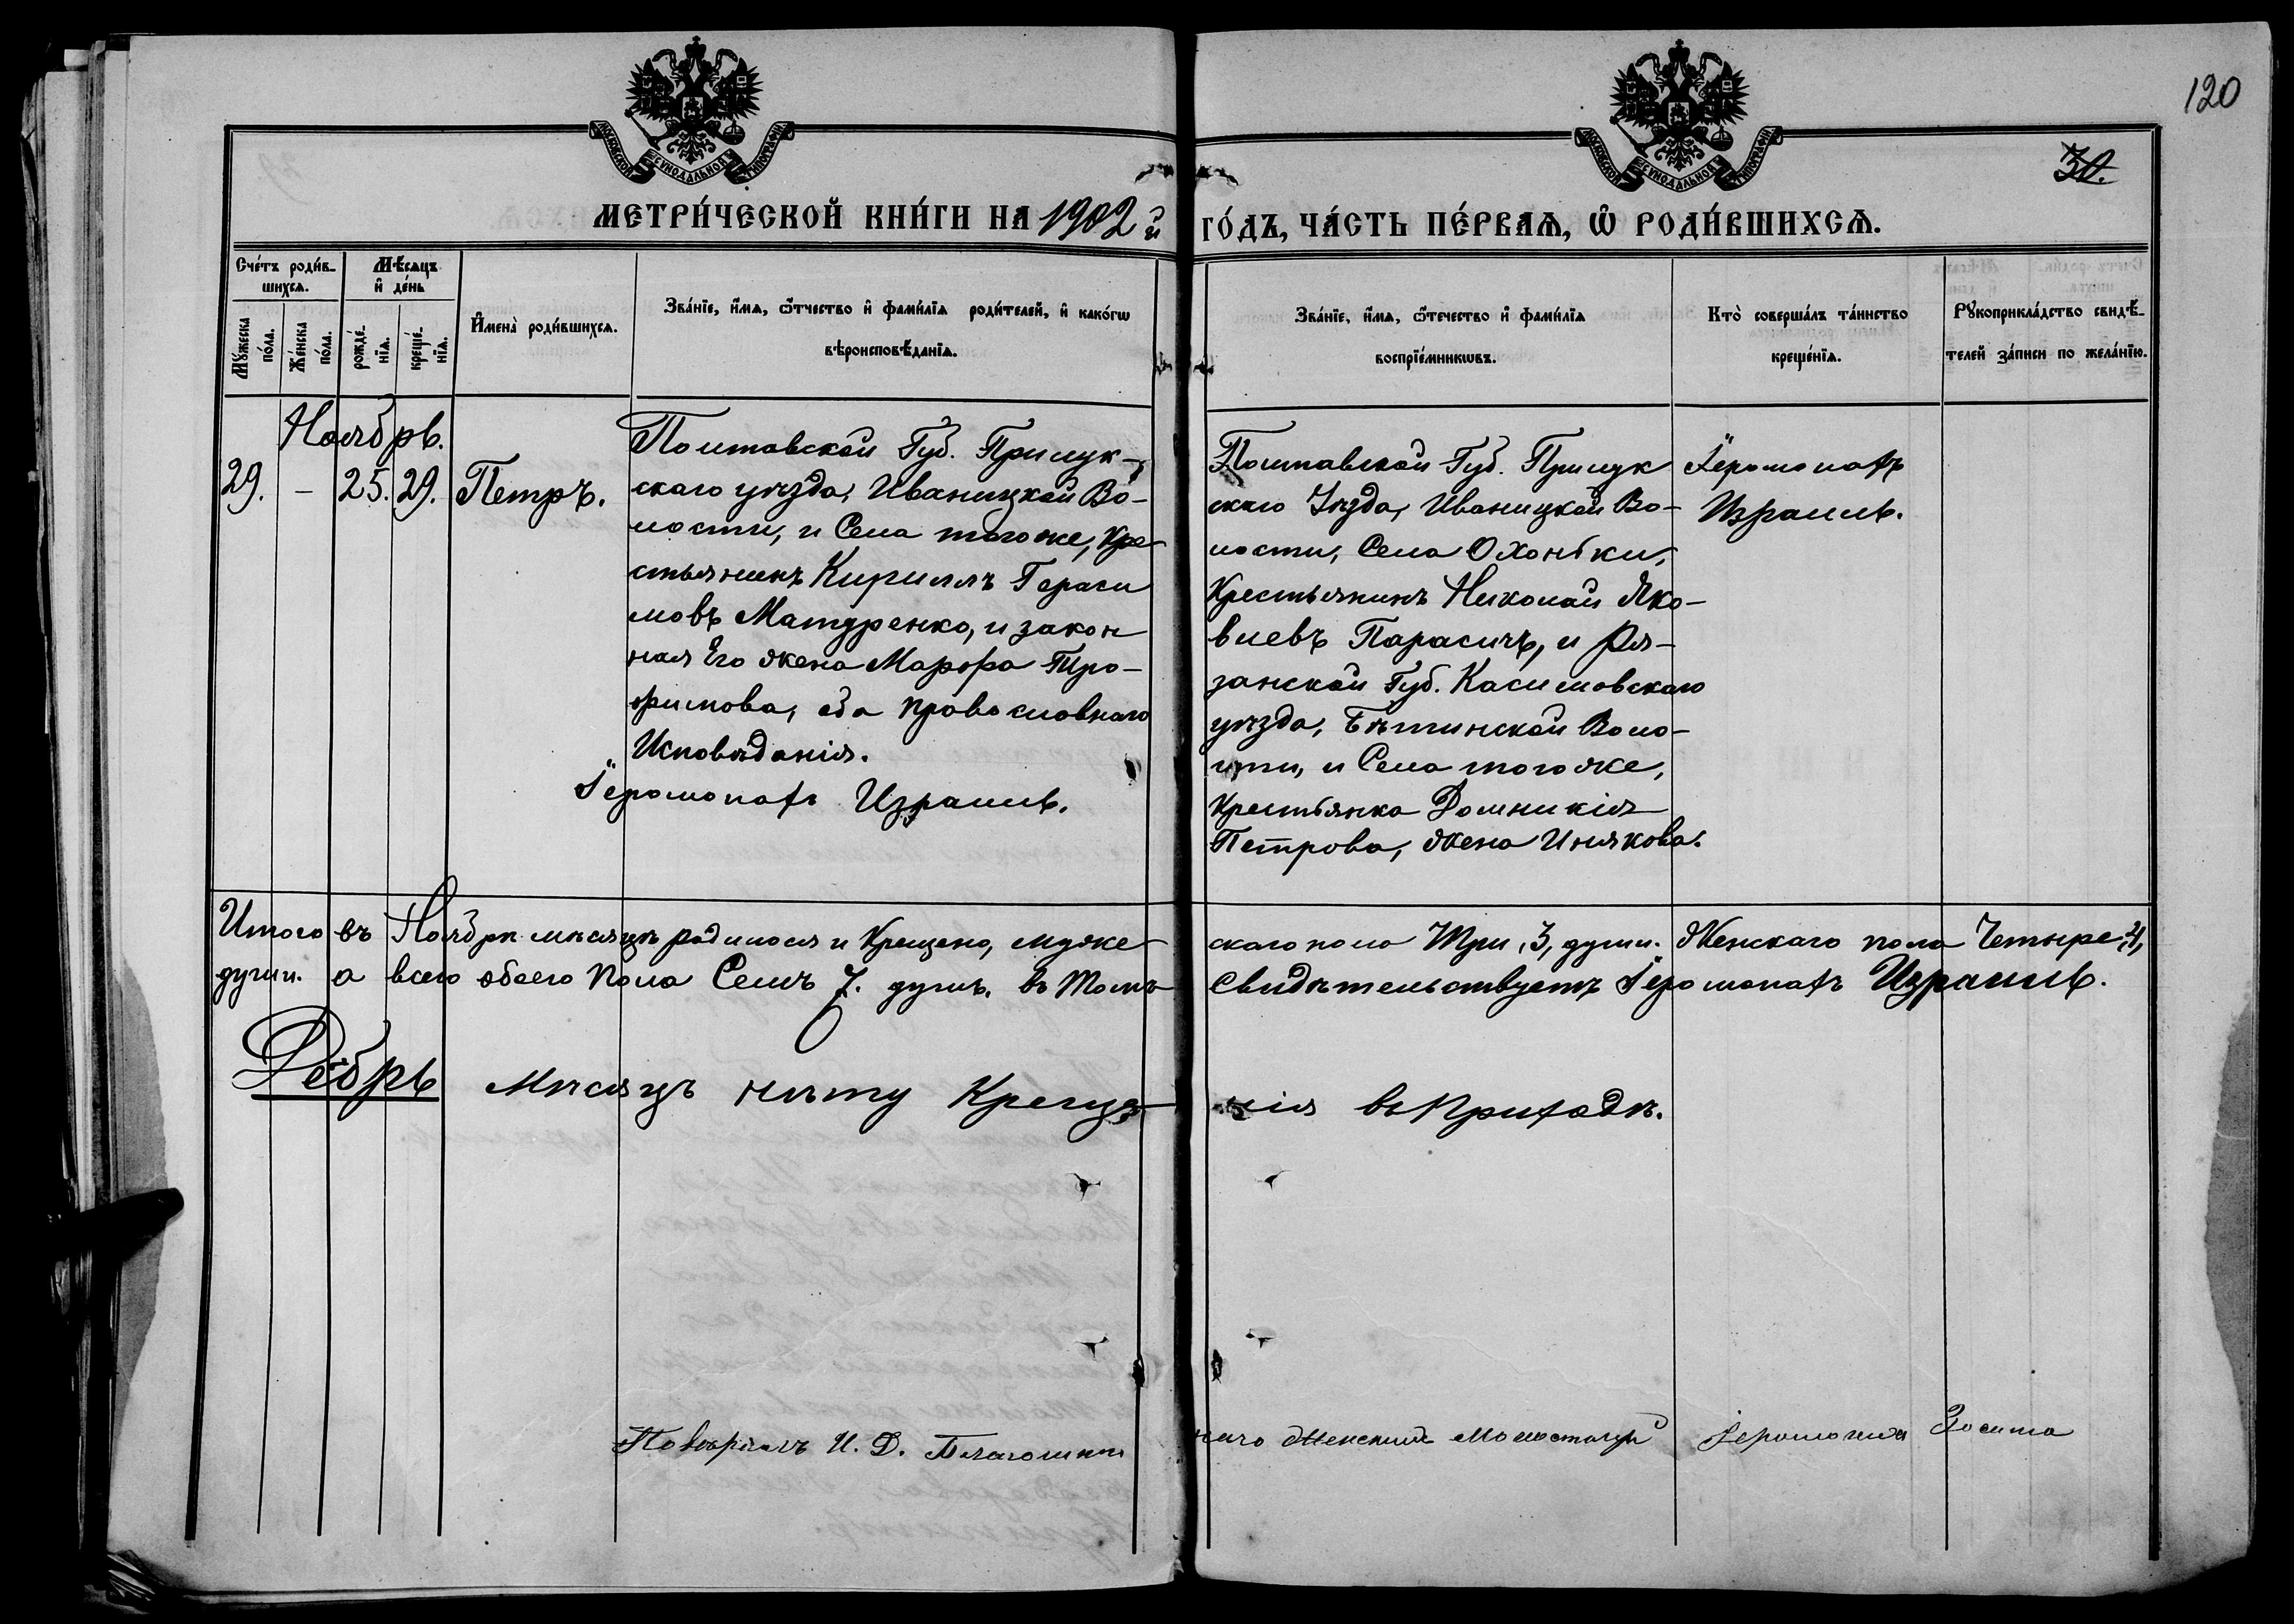 120
30.
МОСКОВСКОЙ СѴНОДАЛЬНОЙ ТИПОГРАФІИ
МОСКОВСКОЙ СѴНОДАЛЬНОЙ ТИПОГРАФІИ
МЕТРИ́ЧЕСКОЙ КНИ́ГИ НА 1902 й ГО́ДЪ, ЧА́СТЬ ПЕ́РВАѦ, Ѡ РОДИ́ВШИХСѦ.
Сче́тъ роди́в-
шихсѧ.
Мѣ́сѧцъ
и҆ де́нь
Мꙋ́жеска
по́ла.
Же́нска
по́ла.
рожде́-
нїѧ.
креще́-
нїѧ.
И҆мена̀ роди́вшихсѧ.
Зва́нїе, и҆́мѧ, ѻ҆́тчество и҆ фами́лїѧ роди́телей, и҆ како́гѡ
вѣроисповѣ́данїѧ.
Зва́нїе, и҆́мѧ, ѻ҆́течество и҆ фами́лїѧ
воспрїе́мникѡвъ.
Кто̀ соверша́лъ та́инство
креще́нїѧ.
Рꙋкоприкла́дство свидѣ́-
телей за́писи по жела́нїю.
Ноябрь.
29. – 25. 29. Петръ.
Полтавской Губ. Прилук-
скаго уѣзда, Иваницкой Во-
лости, и Села тогоже, Кре
стьянинъ Кириллъ Гераси
мовъ Матуренко, и закон
ная Его жена Марфа Тро-
фимова, оба православнаго
Исповѣданія.
Іеромонахъ Израиль.
Полтавской Губ. Прилук
скаго Уѣзда, Иваницкой Во-
лости, Села Охоньки,
Крестьянинъ Николай Яко-
влевъ Парасичъ, и Ря-
занской Губ. Касимовскаго
уѣзда, Бѣтинской Воло-
сти, и Села того же,
Крестьянка Домникія
Петрова, жена Инякова.
Іеромонахъ
Израиль.
Итого въ Ноябрѣ мѣсяцѣ родилося и Крещено, муже скаго пола Три, 3, души. Женскаго пола Четыре, 4,
души. а всего обоего Пола Семъ 7. душъ. въ Томъ Свидѣтельствуетъ Іеромонахъ Израиль.
Декбрь Мѣсяцъ нѣту Креще нія въ Приходѣ.
И. Д. Іеромонах Зосима